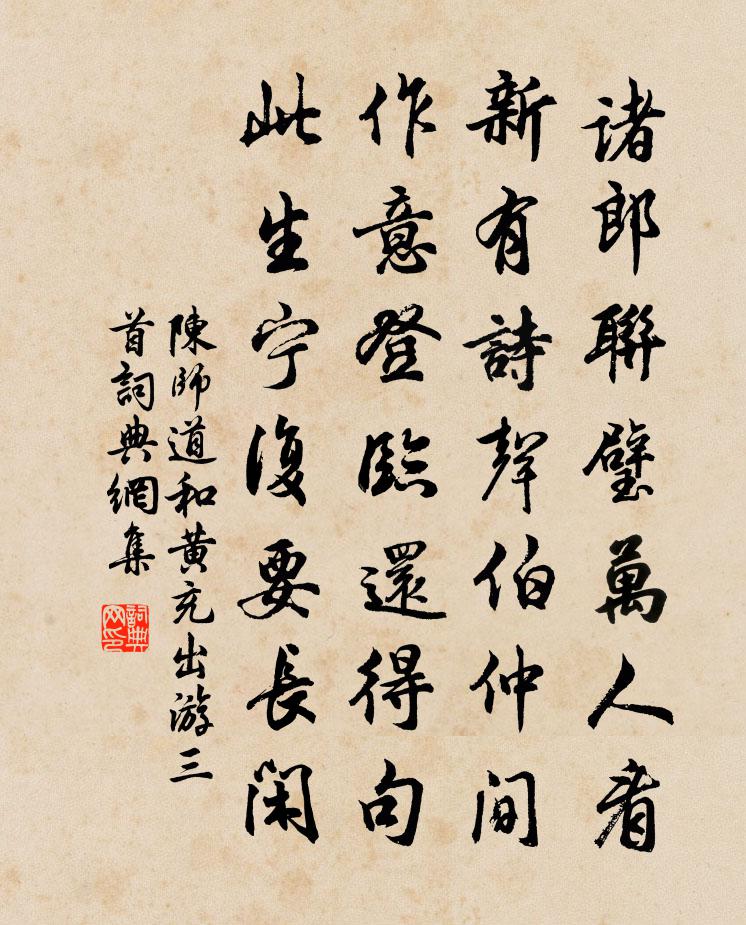 諸郎聯璧萬人看
新有詩聲伯仲間
作意登臨還得句
此生宁復要長閑
陳師道和黄充出游三
首詞典網集
詞典网印